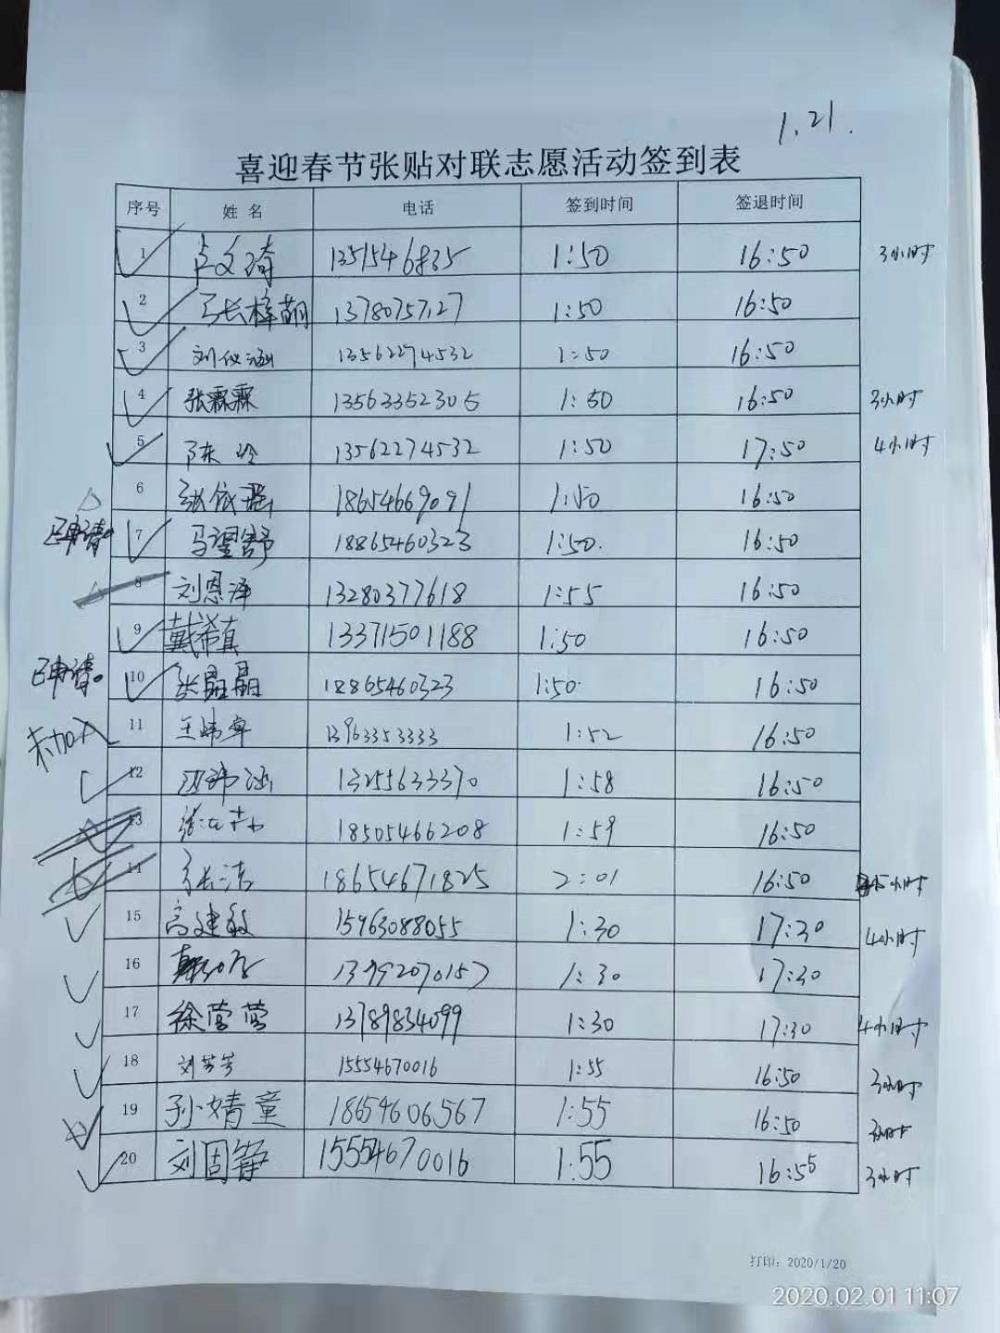 1.21.
喜迎春节张贴对联志愿活动签到表
序号 姓名 电话 签到时间 签退时间
1 卢文琦 1351546835 1:50 16:50 3小时
2 张梓萌 13780757127 1:50 16:50
3 刘仪涵 13562274532 1:50 16:50
4 张霖霖 13563352305 1:50 16:50 3小时
5 陈玲 13562274532 1:50 17:50 4小时
6 张依瑶 18654669091 1:50 16:50
已申请 7 马望舒 18865460323 1:50. 16:50
8 刘恩泽 13280377618 1:55 16:50
9 戴希真 13371501188 1:50 16:50
已申请。 10 张晶晶 18865460323 1:50 16:50
未加入 11 王炜卓 13963353333 1:52 16:50
12 涵 13255633370 1:58 16:50
13 18505466208 1:59 16:50
14 张洁 18654671825 2:01 16:50 小时
15 高建敏 15963088055 1:30 17:30 4小时
16 1:30 17:30
17 徐营营 13789834099 1:30 17:30 4小时
18 刘芳芳 15554670016 1:55 16:50 3小时
19 孙婧童 18654606567 1:55 16:50 3小时
20 刘固铮 15554670016 1:55 16:55 3小时
打印：2020/1/20
2020.02.01 11:07